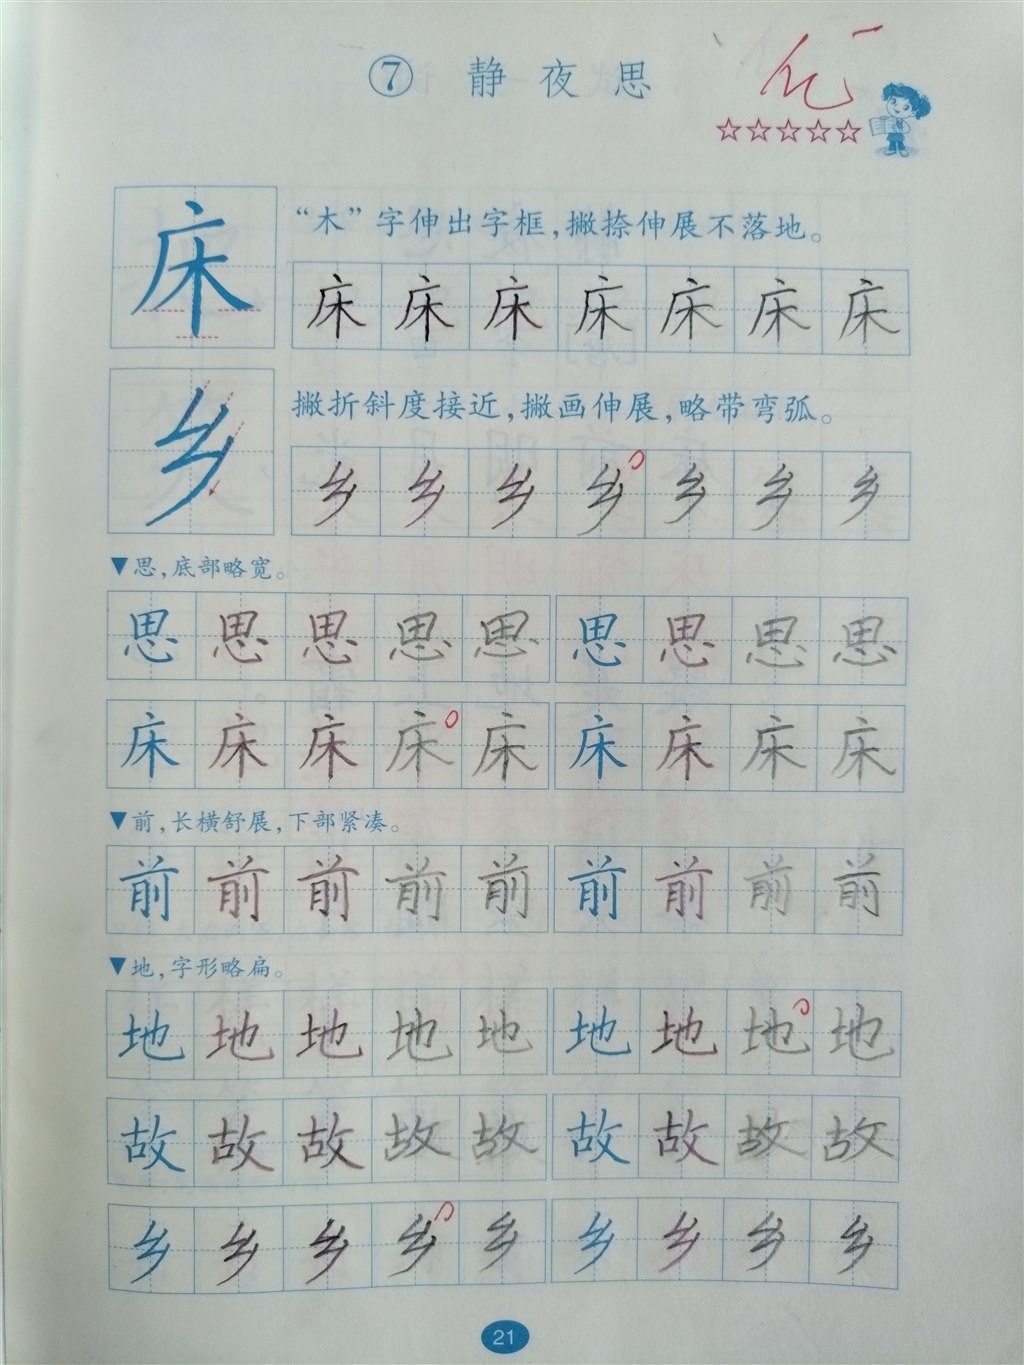 ⑦ 静夜思
床
“木”字伸出字框,撇捺伸展不落地。
床床床床床床床
乡
撇折斜度接近,撇画伸展,略带弯弧。
乡乡乡乡乡乡乡
▼思,底部略宽。
思思思思思思思思思
床床床床床床床床床
▼前,长横舒展,下部紧凑。
前前前前前前前前前
▼地,字形略扁。
地地地地地地地地地
故故故故故故故故故
乡乡乡乡乡乡乡乡乡
21